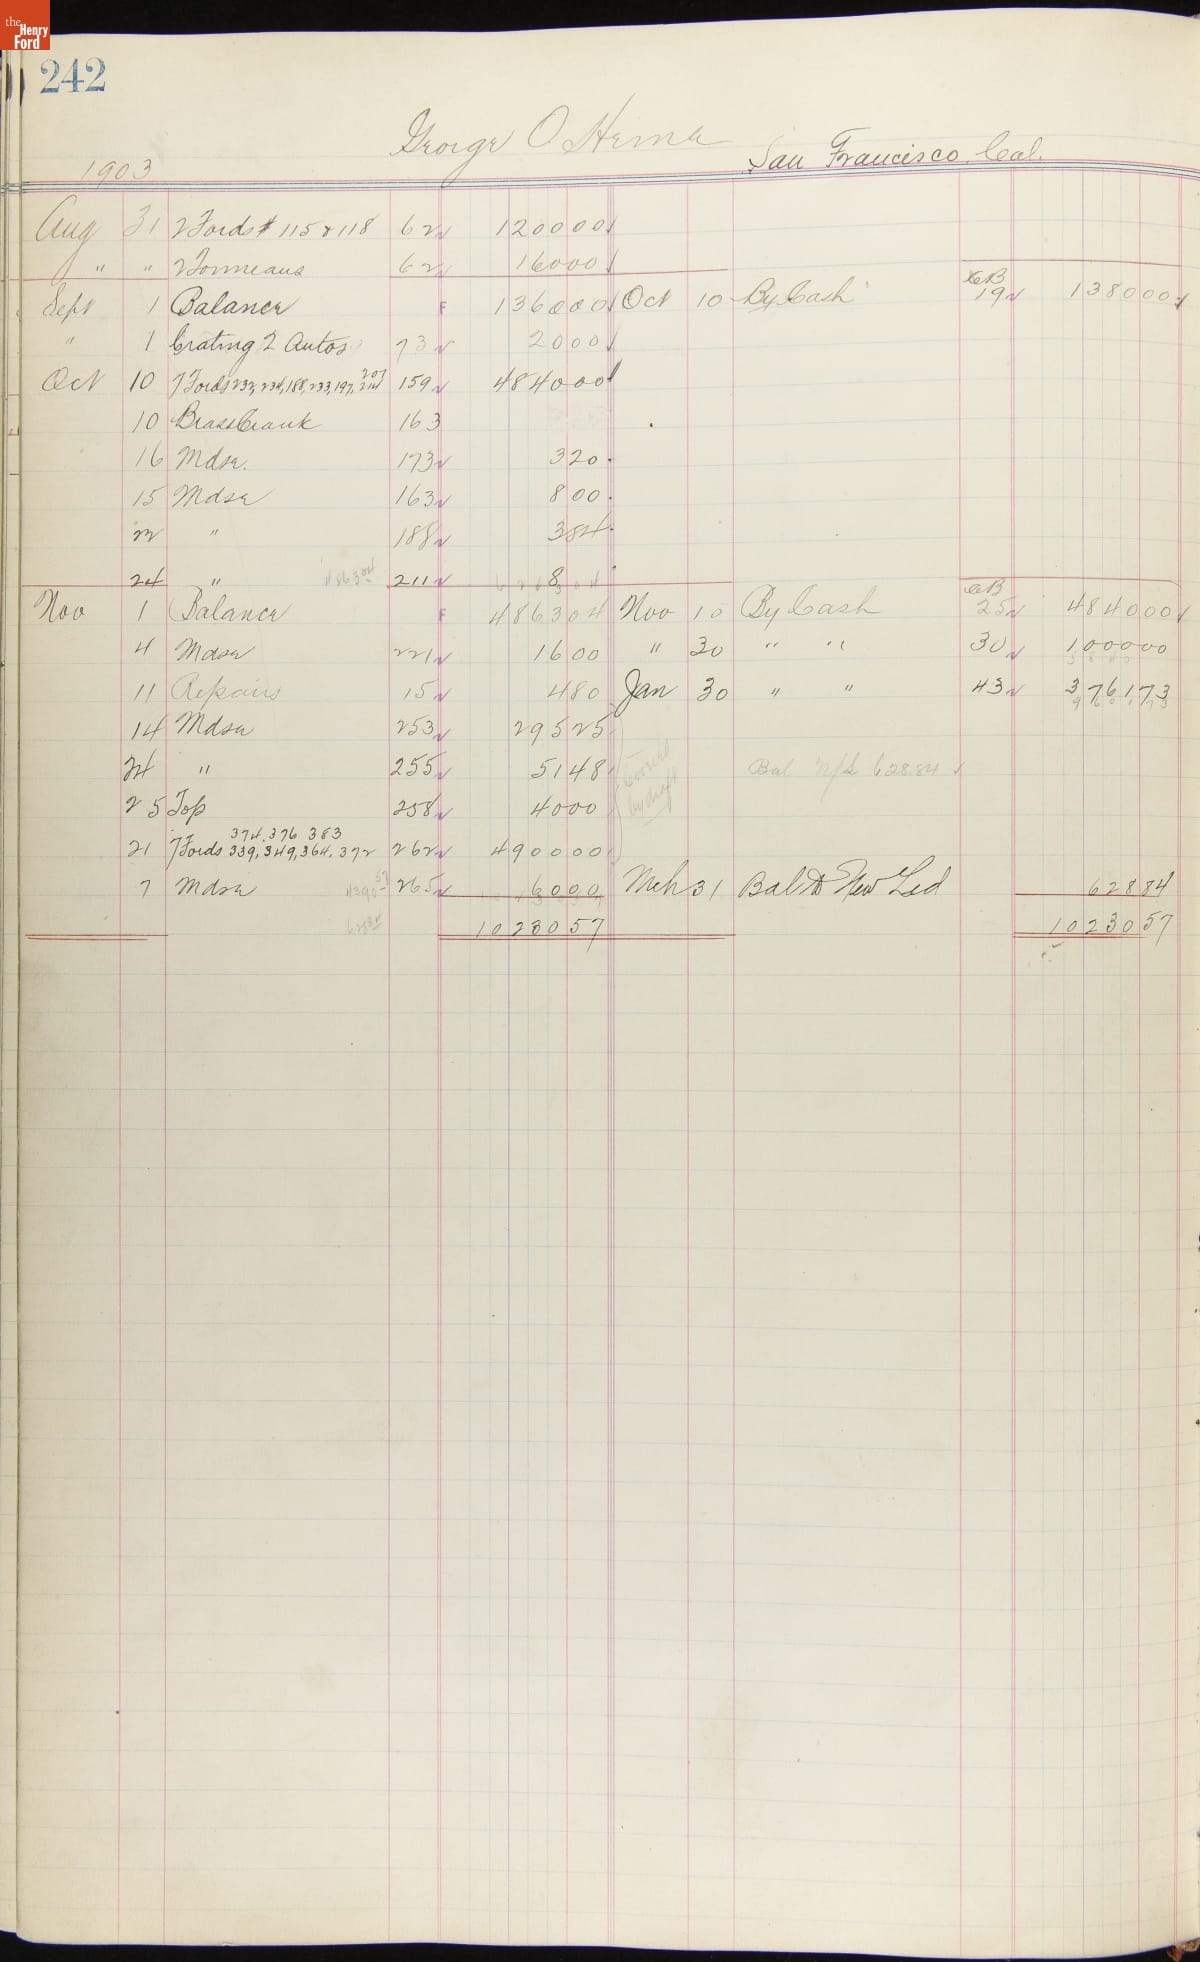 the Henry Ford
242
George O Hema San Francisco Cal.
1903
Aug 31 2 Fords # 115 & 118 62 120000
" " 2 Tonneaus 62 16000
Sept 1 Balance F 136000 Oct 10 By Cash CB 19 138000
" 1 Crating 2 Autos 73 2000
Oct 10 7 Fords 232, 234, 188, 233, 197, 207 214 159 484000
10 Brass Crank 163
16 Mdse. 173 320
15 Mdse 163 800
22 " 188 384
24 " 486304 211 8
Nov 1 Balance F 486304 Nov 10 By Cash CB 25 484000
4 Mdse 221 1600 " 30 " " 30 100000
11 Repairs 15 480 Jan 30 " " 43 376173
14 Mdse 253 29525
24 " 255 5148 Covered by draft Bal 628.84
25 Top 258 4000
374, 376 383
21 7 Fords 339, 349, 364, 372 262 490000
7 Mdse 439057 265 6000 Mch 31 Bal to New Led 62884
1023057 1023057